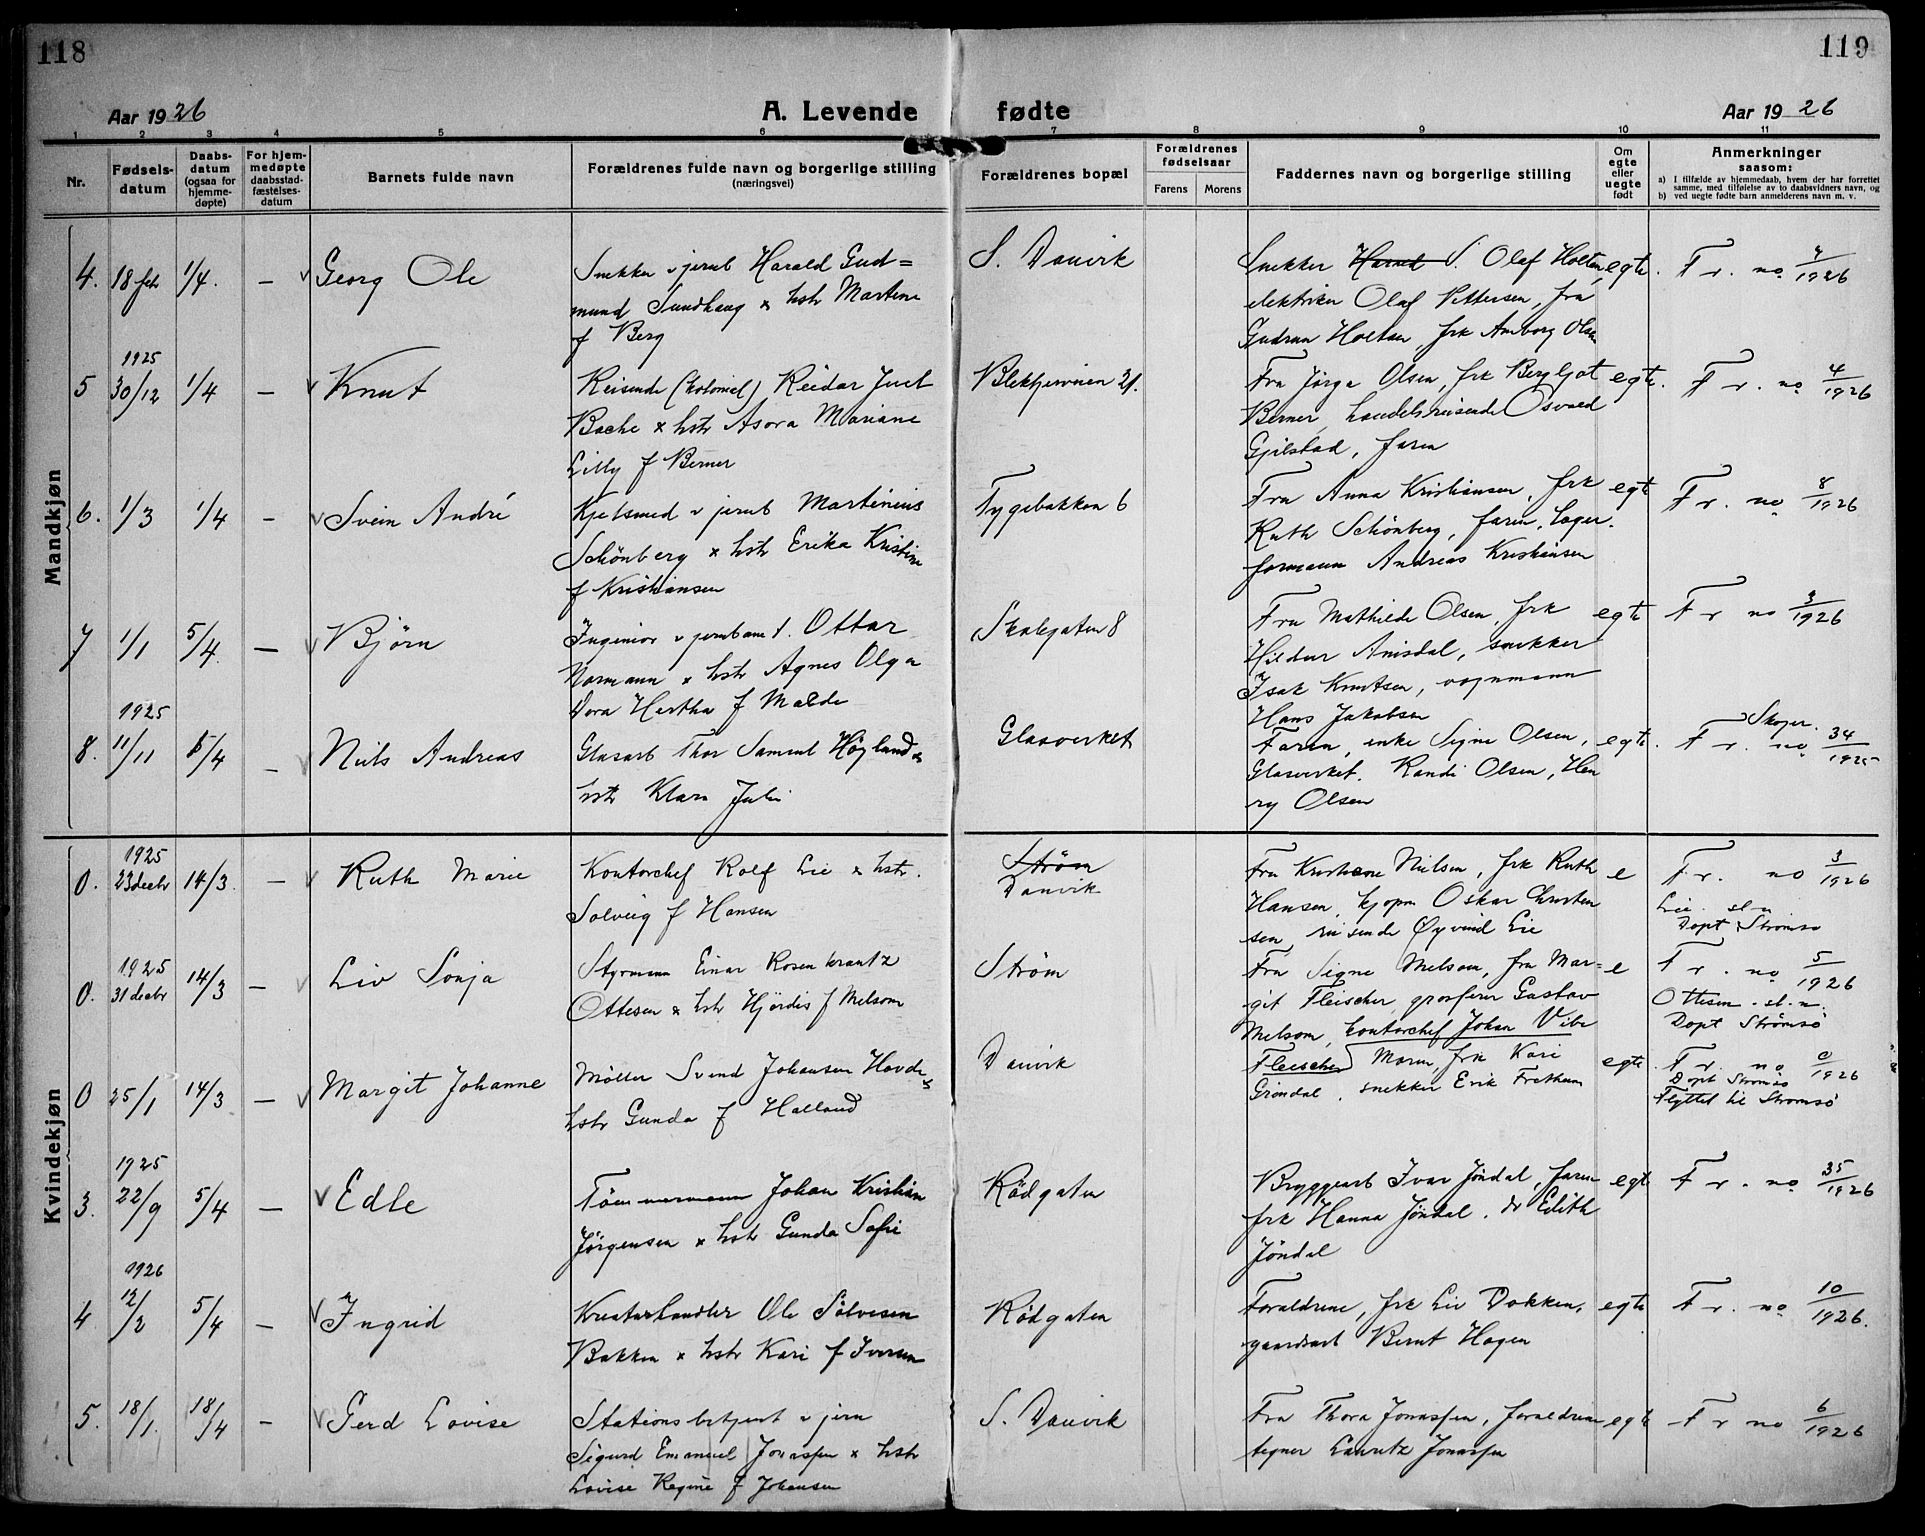 118
119
Aar 1926
A. Levende fødte
Aar 1926
1 2 3 4 5 6 7 8 9 10 11
Nr.
Fødsels-
datum
Daabs-
datum
(ogsaa for
hjemme-
døpte)
For hjem-
medøpte
daabsstad-
fæstelses-
datum
Barnets fulde navn
Forældrenes fulde navn og borgerlige stilling
(næringsvei)
Forældrenes bopæl
Forældrenes
fødselsaar
Farens
Morens
Faddernes navn og borgerlige stilling
Om
egte
eller
uegte
født
Anmerkninger
saasom:
a) I tilfælde av hjemmedaab, hvem der har forrettet
samme, med tilføielse av to daabsvidners navn, og
b) ved uegte fødte barn anmelderens navn m. v.
Mandkjøn
4. 18 feb 1/4. — Georg Ole
Snekker v jernb Harald Gud=
mund Sundhaug x hstr Martine
f Berg
S. Danvik
Snekker Harald S. Olaf Holtan,
elektriker Olaf Pettersen, fru
Gudrun Holtan, frk Aaborg Olsen
egte. F r. no 7/1926
1925
5 30/12 1/4 — Knut
Reisende (kolonial) Reidar Juel
Bache x hstr Asora Mariane
Lilly f Berner
Blekkjerveien 21.
Fru Jørga Olsen, frk Bergljot
Berner, handelsreisende Osvald
Gjilstad, faren
egte. F r. no 4/1926
6. 1/3 1/4 — Svein André
Kjelsmed v jernb Martinius
Schönberg x hstr Erika Kristine
f Kristiansen
Tygebakken 6
Fru Anna Kristiansen, frk
Ruth Schönberg, faren, lager-
formann Andreas Kristiansen
egte F r. no 8/1926
7 1/1 5/4. — Bjørn
Ingeniør v jernbane d. Ottar
Normann x hstr Agnes Olga
Dora Hertha f Malde
Skolegaten 8
Fru Mathilde Olsen, frk
Hildur Amsdal, snekker
Isak Knutsen, vognmann
Hans Jakobsen
egte F r no 3/1926
1925
8. 11/11 5/4 — Nils Andreas
Glasarb Thor Samuel Høyland x
hstr Klara Juli
Glasverket
Faren, enke Signe Olsen,
Glasverket. Randi Olsen, Hen
ry Olsen
egte. Skoger. F r. no 34/1925
Kvindekjøn
1925
0. 23 decbr 14/3. — Ruth Marie
Kontorchef Rolf Lie x hstr.
Solveig f Hansen
Strøm
Danvik
Fru Kristiane Nielsen, frk Ruth
Hansen, kjøpm Oskar Christen
sen, reisende Øyvind Lie
e F r. no 3/1926
Lie. sl. n
Døpt Strømsø
1925
0. 31 decbr 14/3 — Liv Sonja
Styrmann Einar Rosenkrantz
Ottesen x hstr Hjördis f Melsom
Strøm
Fru Signe Melsom, fru Mar=
git Fleischer, grosserer Gustav
Melsom, kontorchef Johan Vibe
Fleischer
e F r. no 5/1926
Ottesen. sl. n.
Døpt Strømsø
0 25/1 14/3 — Margit Johanne
Møller Svend Johansen Hovde x
hstr Gunda f Halland
Danvik
Moren, frk Kari
Grøndal, snekker Erik Fretheim
egte. F r. no 0/1926
Døpt Strømsø
Flyttet til Strømsø
1925
3. 22/9 5/4 — Edle
Tømmermann Johan Kristian
Jørgensen x hstr Gunda Sofie
Rödgaten
Bryggearb Ivar Jøndal, faren
frk Hanna Jøndal. do Edith
Jøndal
egte F r. no 35/1926
1926
4 12/2 5/4 — Ingrid
Kreaturhandler Ole Sölvesen
Bakken x hstr Kari f Iversen
Rödgaten
Forældrene, frk Liv Dokken,
gaardsarb Bernt Hagen
egte F r. no 10/1926.
5. 18/1. 18/4 — Gerd Lovise
Stationsbetjent v jern
Sigurd Emanuel Jonassen x hstr
Lovise Regine f Johansen
S. Danvik
Fru Thora Jonassen, forældrene
tegner Lauritz Jonassen
egte F r no 6/1926